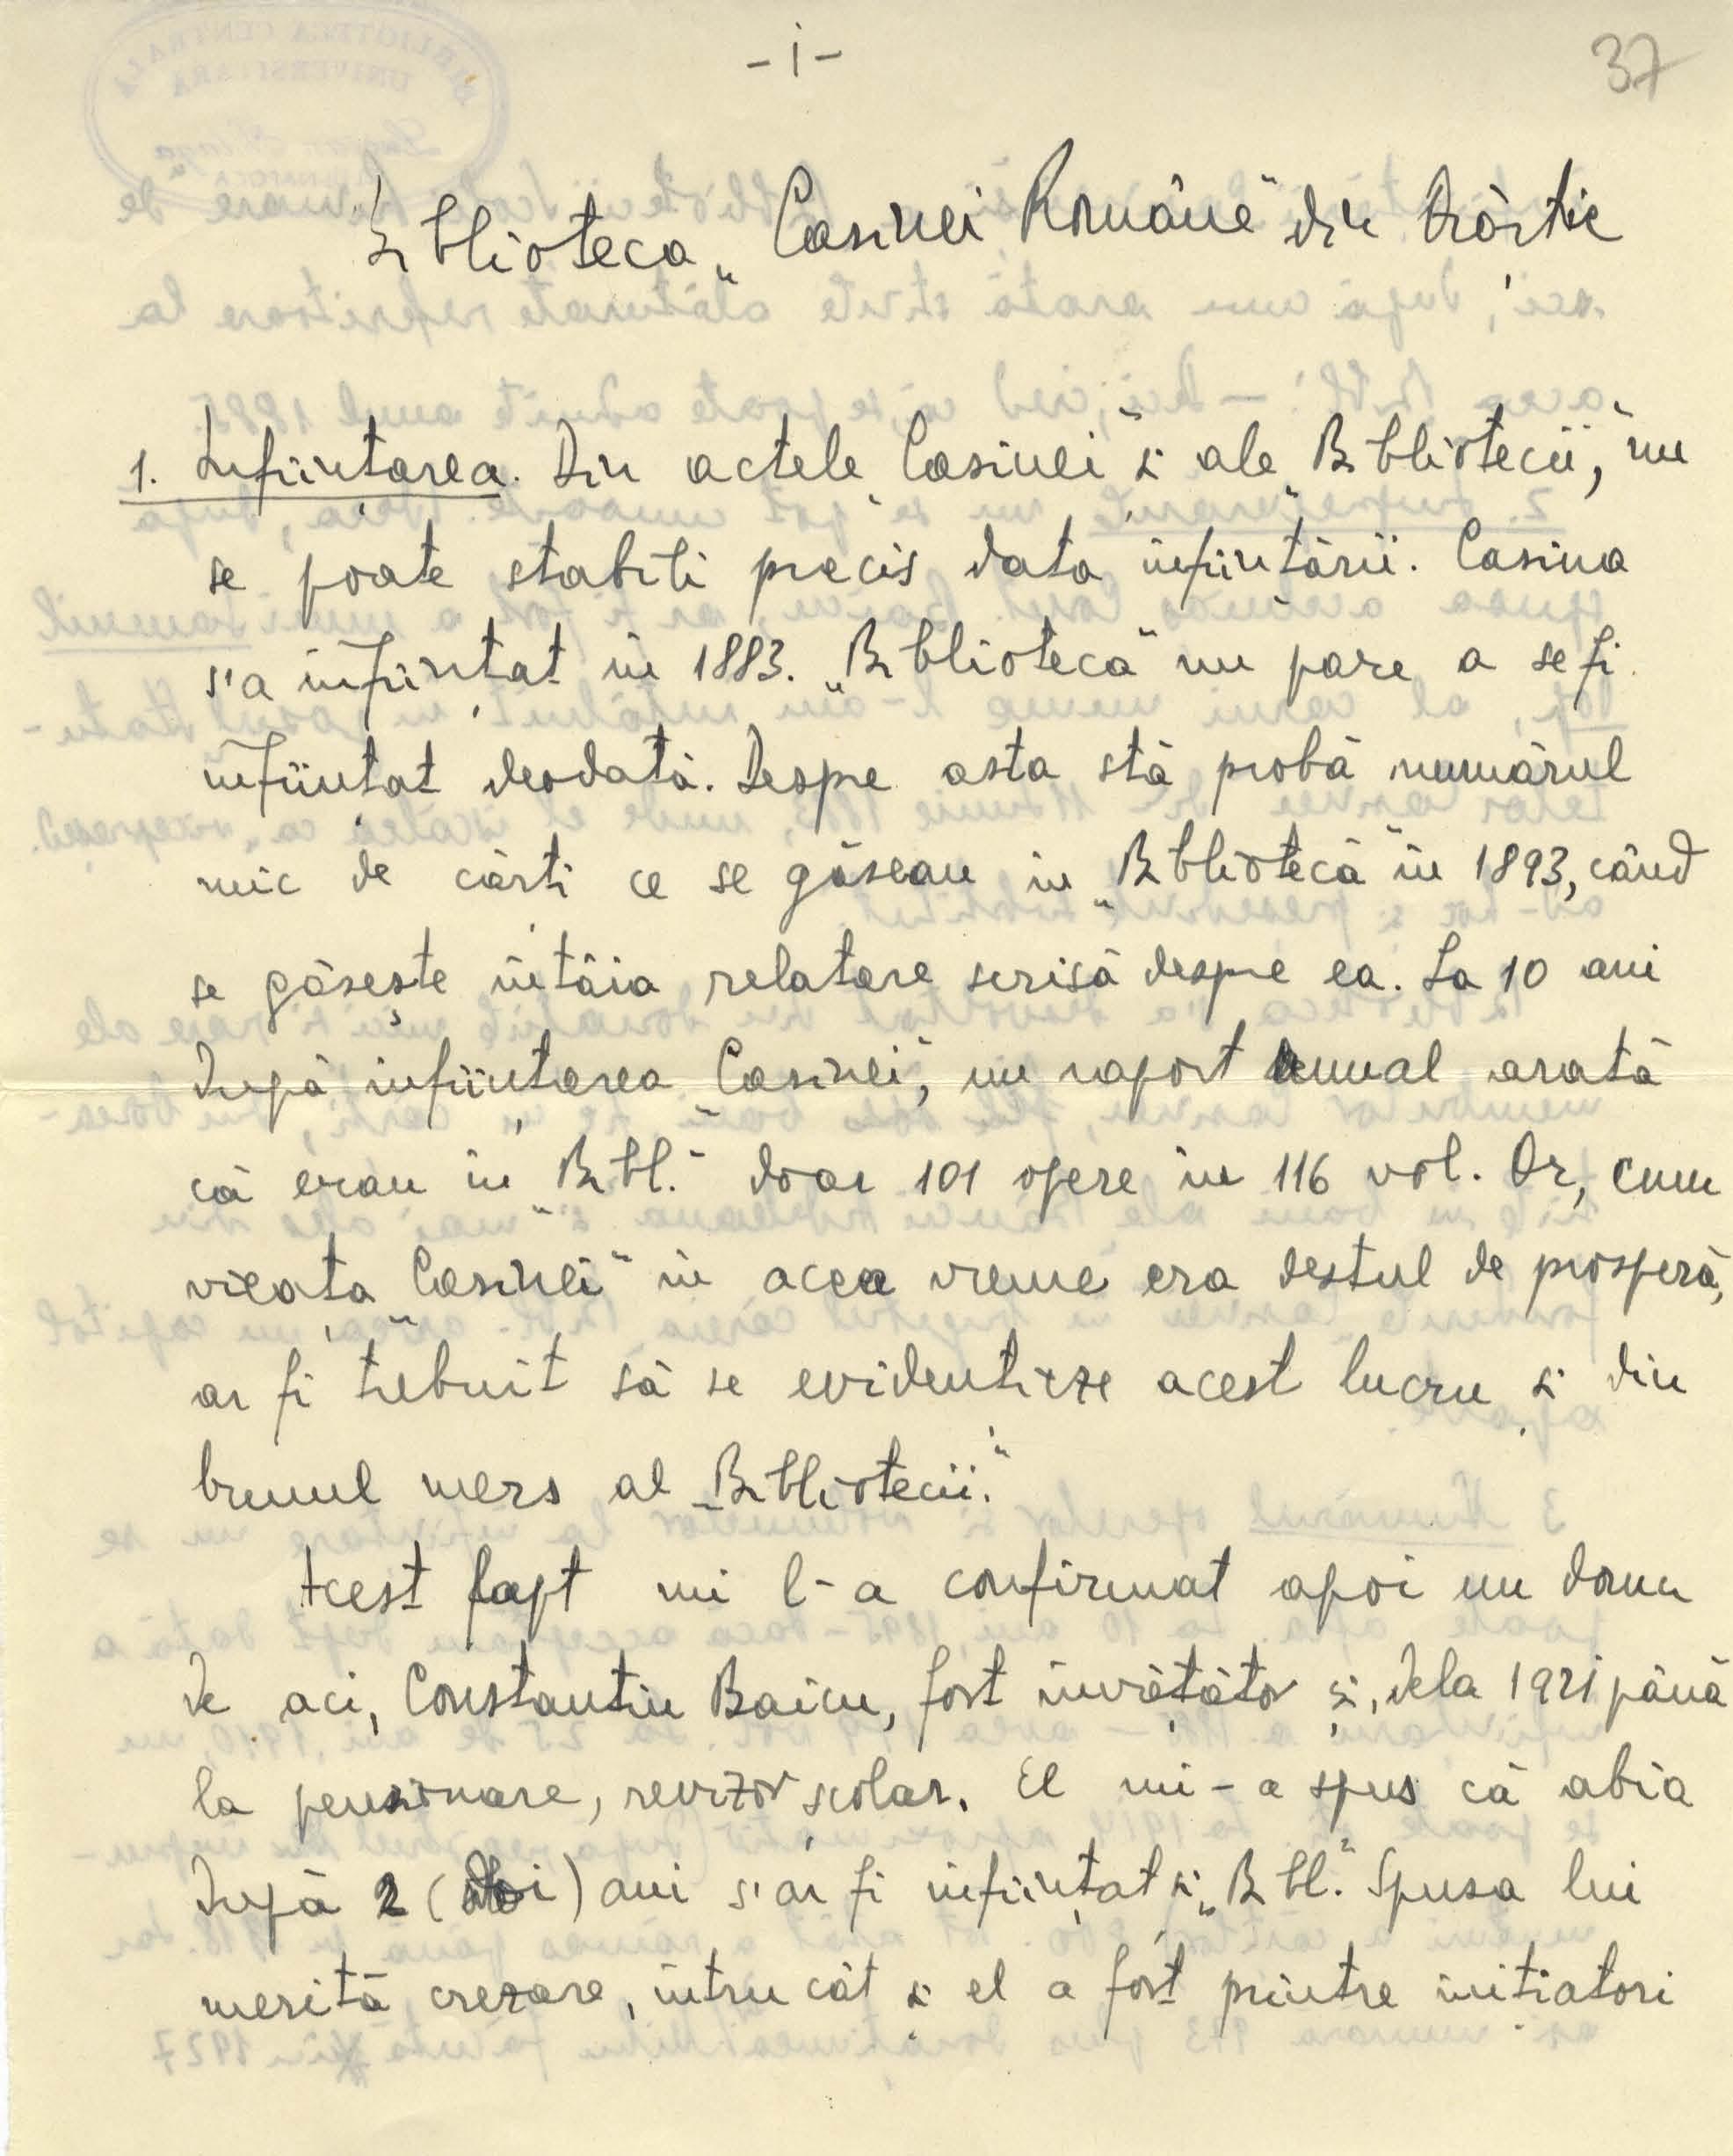 - 1 -
37
Biblioteca „Casinei Române" din Orăștie
1. Înființarea. Din actele „Casinei" și ale „Bibliotecii", nu
se poate stabili precis data înființării. Casina
s'a înființat în 1883. „Biblioteca" nu pare a se fi
înființat deodată. Despre asta stă probă numărul
mic de cărți ce se găseau în „Bibliotecă" în 1893, când
se găsește întâia relatare scrisă despre ea. La 10 ani
după înființarea „Casinei", un raport anual arată
că erau în „Bibl." doar 101 opere în 116 vol. Or, cum
vieața „Casinei" în acea vreme era destul de prosperă,
ar fi trebuit să se evidențieze acest lucru și din
bunul mers al „Bibliotecii."
Acest fapt mi l-a confirmat apoi un domn
de aci, Constantin Baicu, fost învățător și, dela 1921 până
la pensionare, revizor școlar. El mi-a spus că abia
după 2 (doi) ani s'ar fi înființat și „Bibl." Spusa lui
merită crezare, întru cât și el a fost printre inițiatori